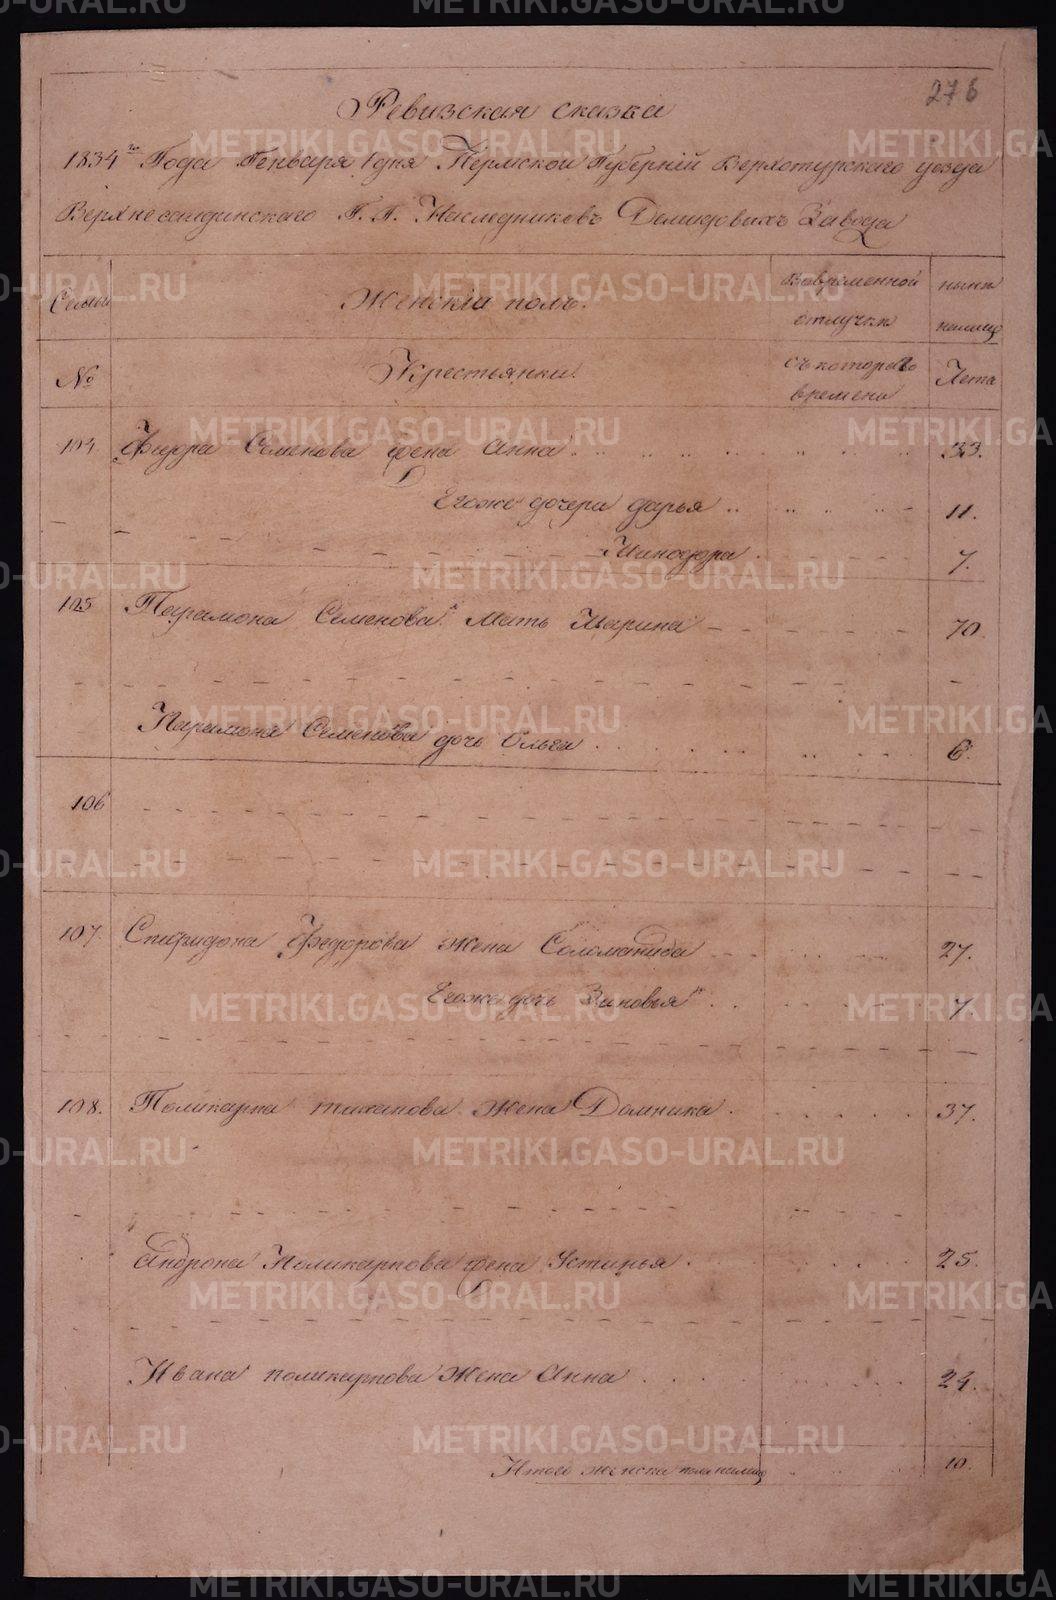 276
Ревизская сказка
1834го Года Генваря 1 дня Пермской Губерніи Верхотурскаго уезда
Верхнесалдинскаго Г. Г. Наследниковъ Демидовыхъ Завода
Семьи Женскіи полъ. Вовременной отлучке ныне налицо
№ Крестьянки. съ котораго времени Лета
104 Фидора Семенова жена Анна 33.
Егоже дочери дарья 11.
Минодора 7.
105 Парамона Семенова Мать Марина 70
Парамона Семенова дочь Ольга 6.
106
107. Спиридона Федорова жена Соломонида 27.
Егоже дочь Зиновья 7.
108. Поликарпа жена Домника 37.
Андрона Поликарпова жена Устинья 25.
Ивана поликарпова жена Анна 24.
Итого женска пола налицо 10.
METRIKI.GASO-URAL.RU